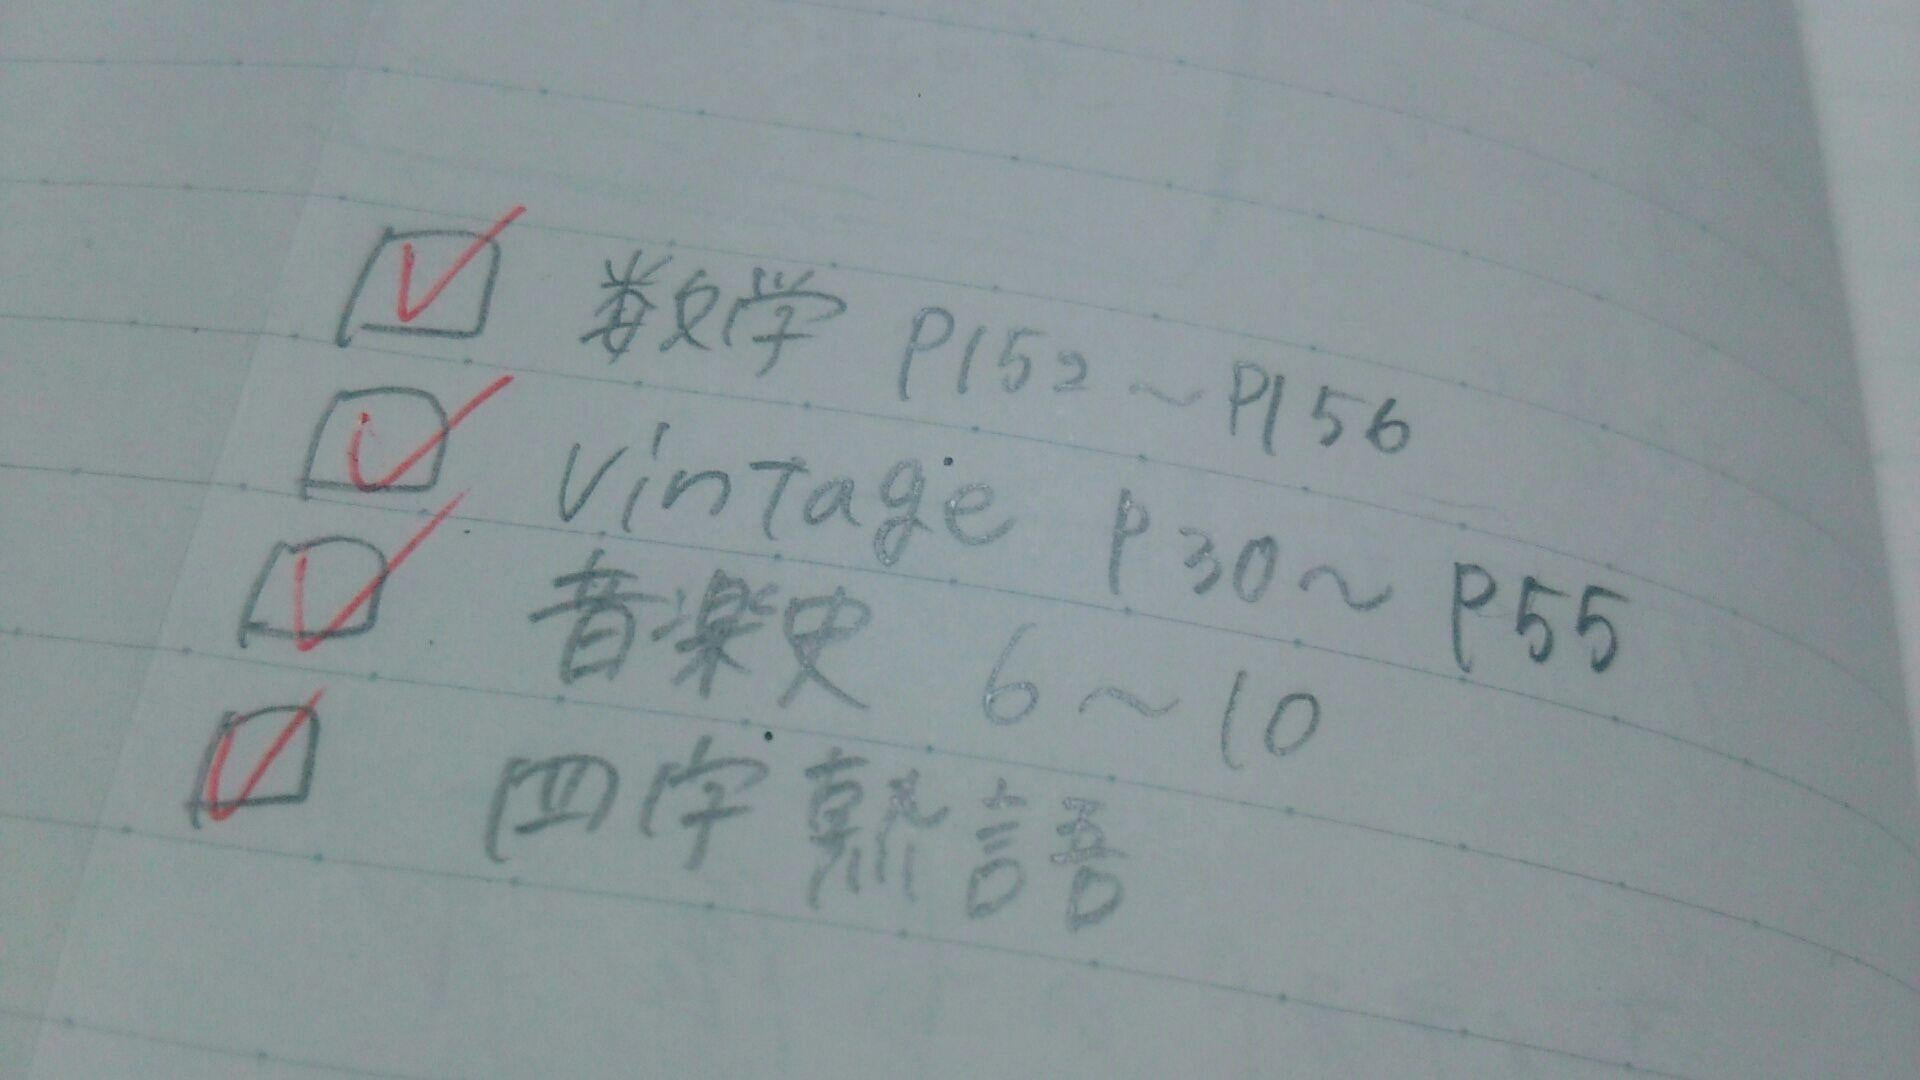 ☑ 数学 P152～P156
☑ Vintage P30～P55
☑ 音楽史 6～10
☑ 四字熟語